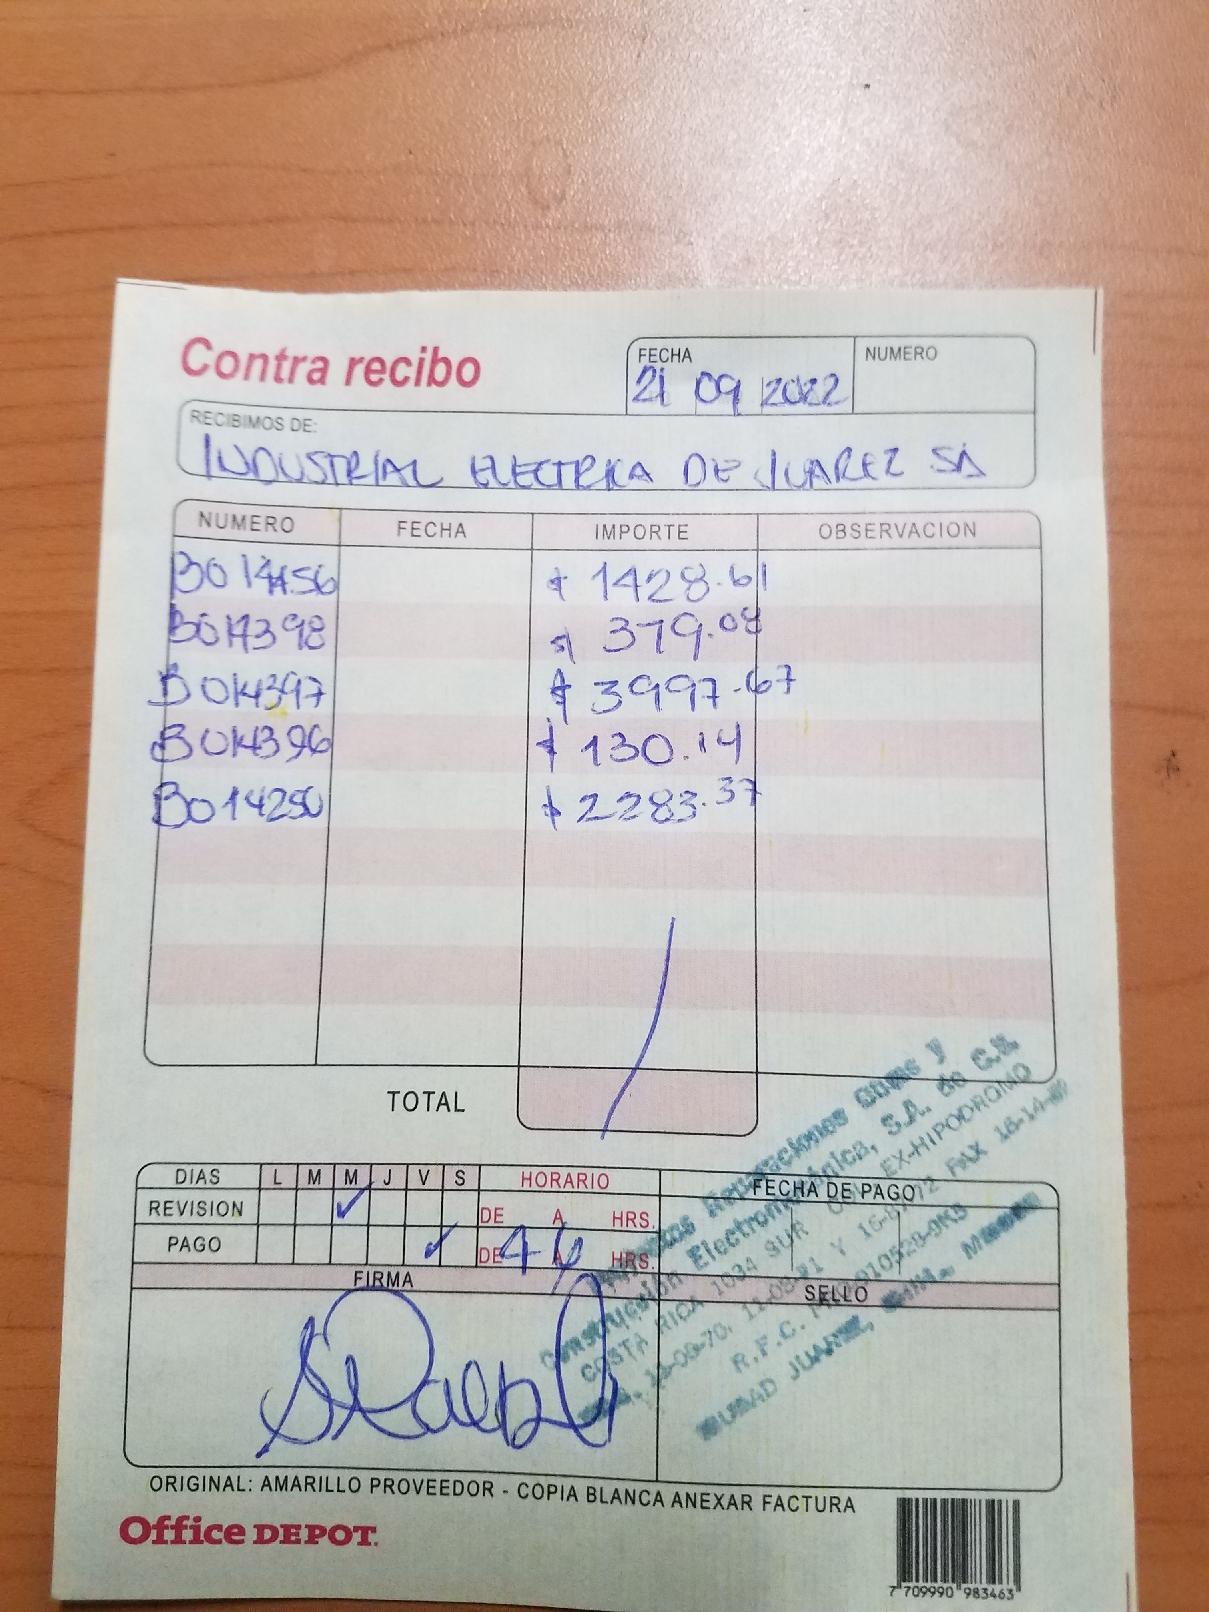 Contra recibo
FECHA
21 09 2022
NUMERO
RECIBIMOS DE:
INDUSTRIAL ELECTRICA DE JUAREZ SA
NUMERO FECHA IMPORTE OBSERVACION
B014456 $ 1428.61
B014398 $ 379.08
B014397 $ 3997.67
B014396 $ 130.14
B014250 $ 2283.37
TOTAL
DIAS L M M J V S HORARIO FECHA DE PAGO
REVISION ✓ DE A HRS.
PAGO ✓ DE 4 A 6 HRS.
FIRMA SELLO
Reparaciones Obras y
Construcción Electromecánica, S.A. de C.V.
COSTA RICA 1034 SUR COL. EX-HIPODROMO
Y FAX 16-14-
R.F.C.
CIUDAD JUAREZ, CHIH.
ORIGINAL: AMARILLO PROVEEDOR - COPIA BLANCA ANEXAR FACTURA
Office DEPOT.
7 709990 983463